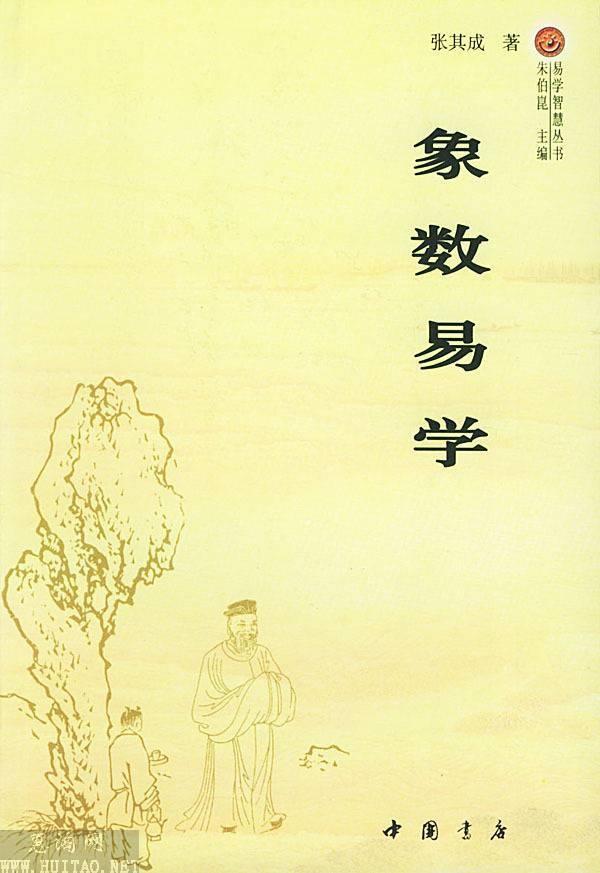 张其成 著
易学智慧丛书
朱伯崑 主编
象数易学
中国书店
WWW.HUITAO.NET